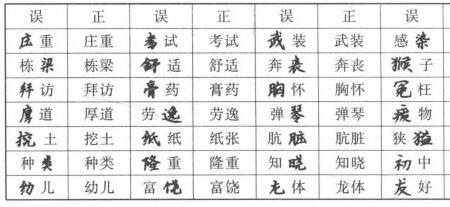 误 正 误 正 误 正 误
庄重 庄重 考试 考试 武装 武装 感染
栋梁 栋梁 舒适 舒适 奔丧 奔丧 猴子
拜访 拜访 膏药 膏药 胸怀 胸怀 冤枉
厚道 厚道 劳逸 劳逸 弹琴 弹琴 物
挖土 挖土 纸纸 纸张 肮脏 肮脏 狭
种类 种类 隆重 隆重 知晓 知晓 初中
幼儿 幼儿 富饶 富饶 体 龙体 友好